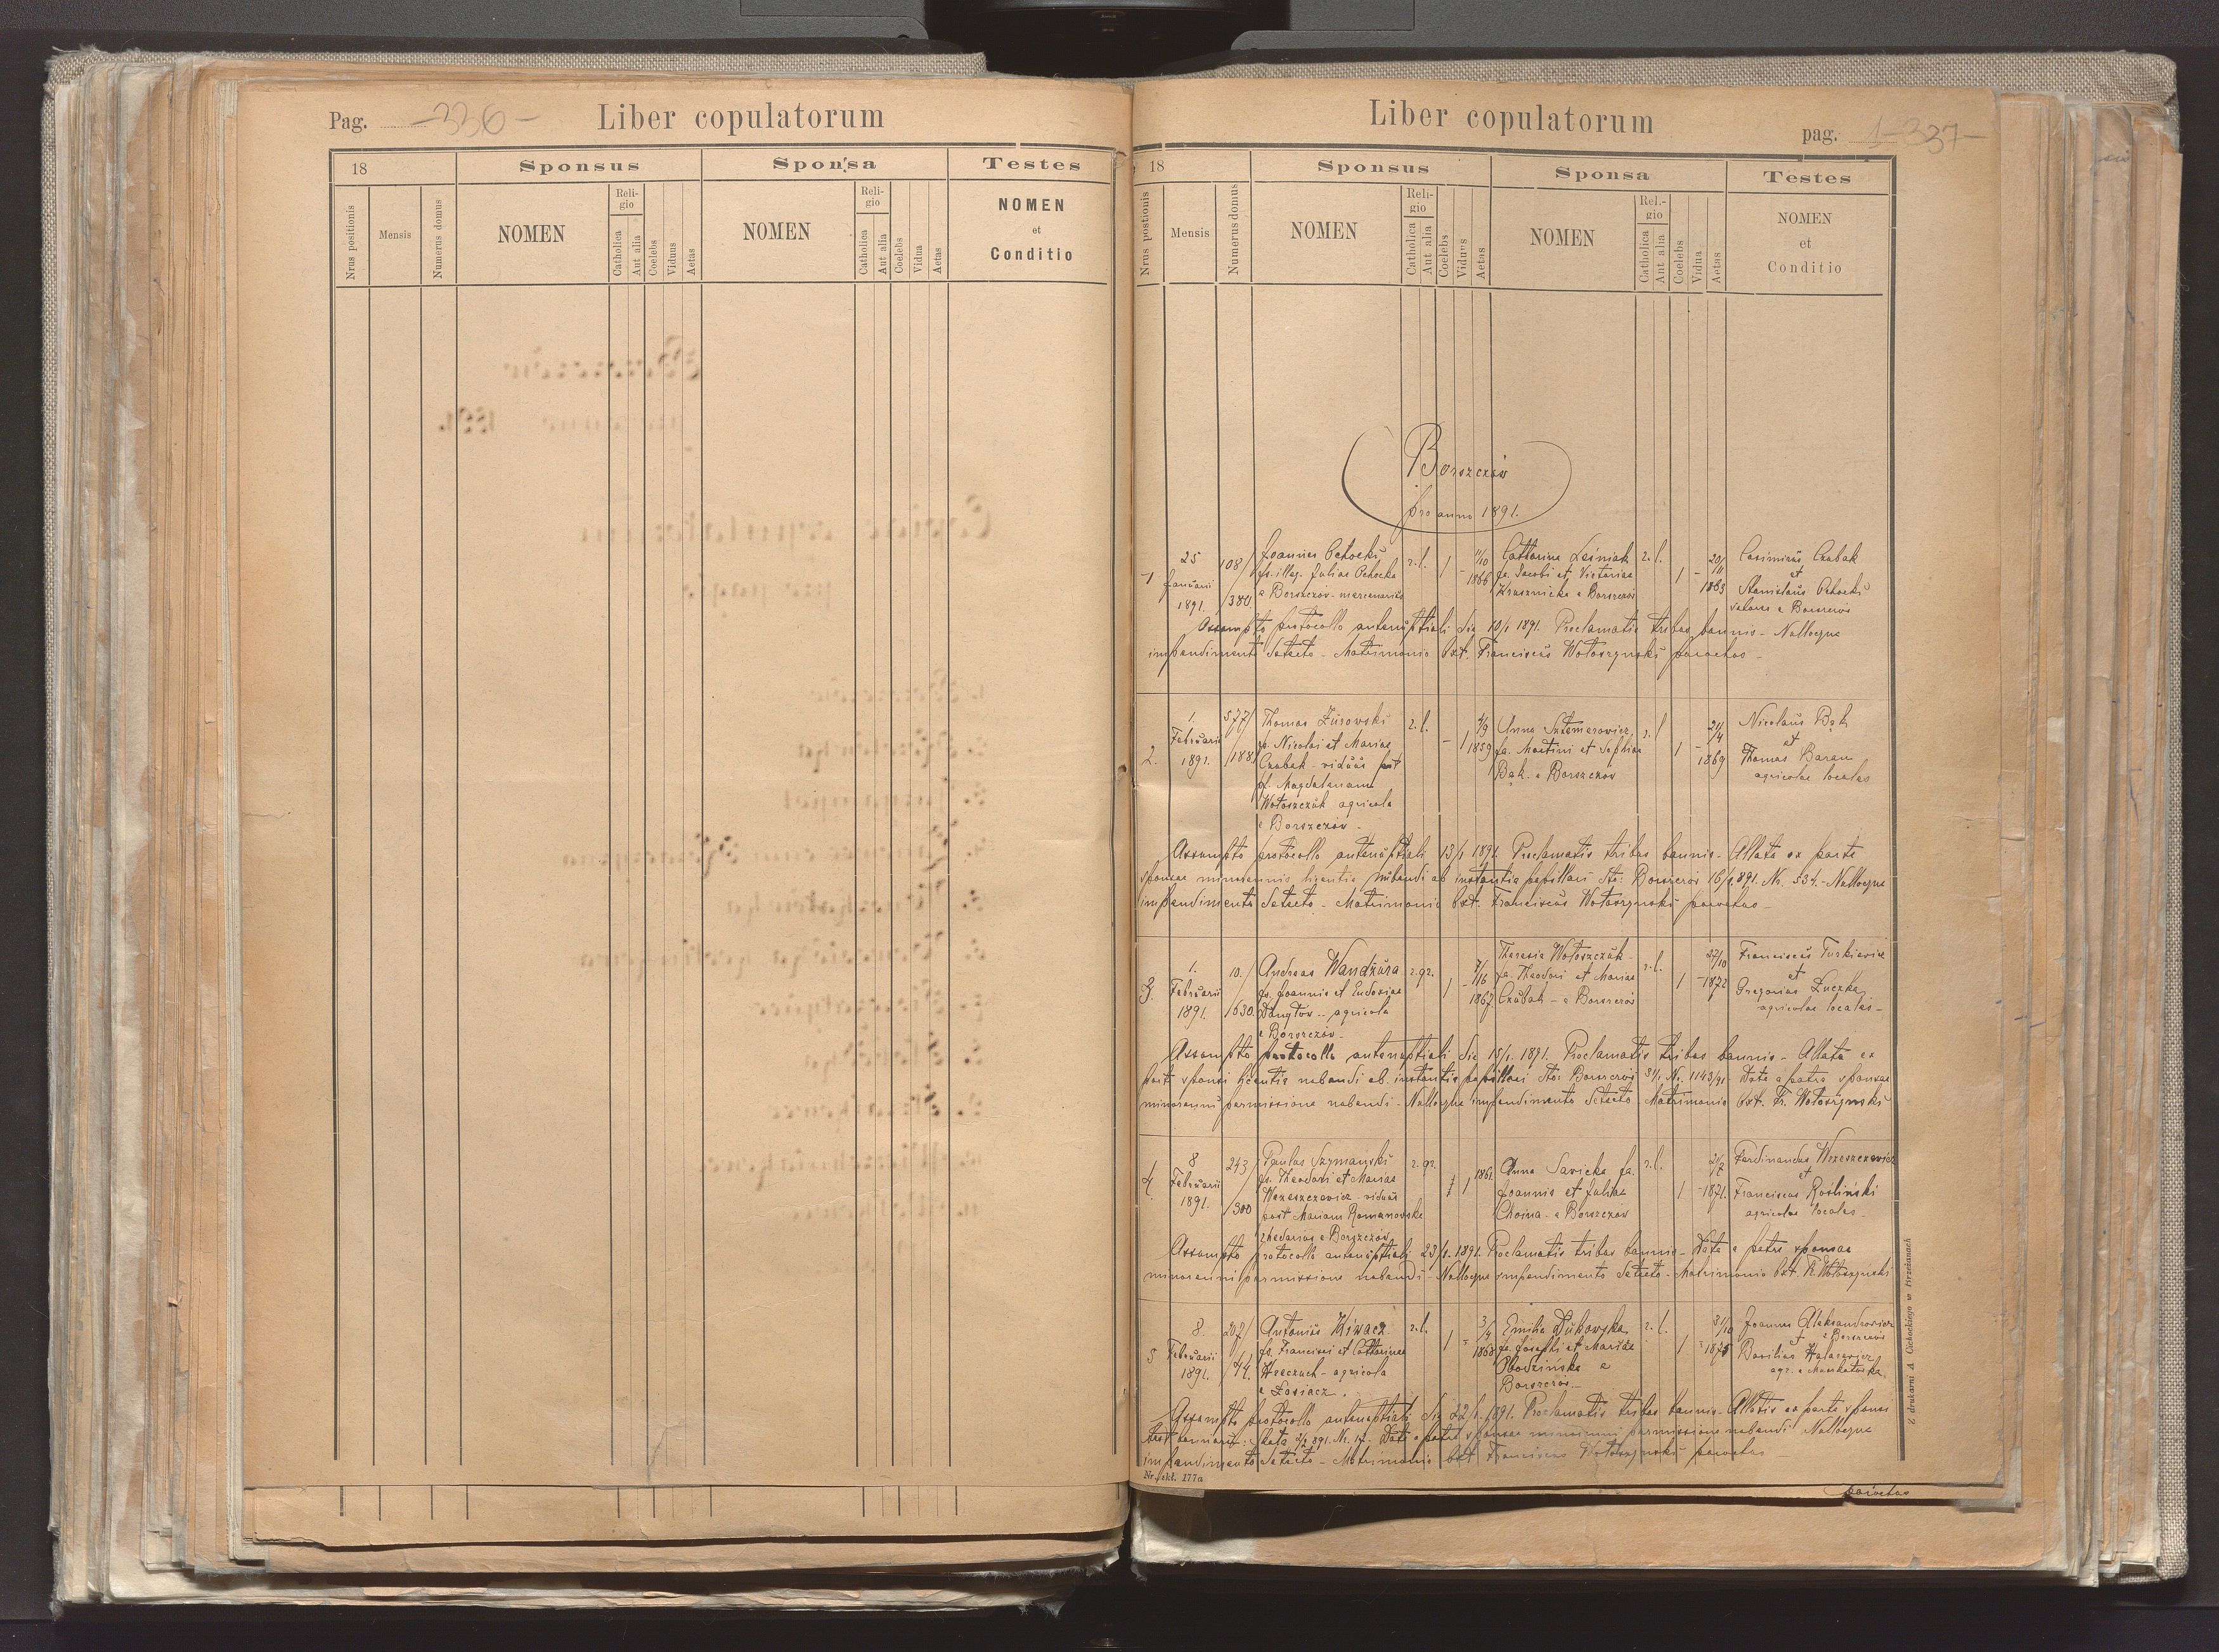 Pag. -336-
Liber copulatorum
18
Sponsus
Sponsa
Testes
Nrus positionis
Mensis
Numerus domus
NOMEN
Reli-
gio
Catholica
Aut alia
Coelebs
Viduus
Aetas
NOMEN
Reli-
gio
Catholica
Aut alia
Coelebs
Vidua
Aetas
NOMEN
et
Conditio
Liber copulatorum
pag. 1-337-
18
Sponsus
Sponsa
Testes
Nrus positionis
Mensis
Numerus domus
NOMEN
Reli-
gio
Catholica
Aut alia
Coelebs
Viduus
Aetas
NOMEN
Reli-
gio
Catholica
Aut alia
Coelebs
Vidua
Aetas
NOMEN
et
Conditio
Borszczów
pro anno 1891.
1
25
Januarii
1891.
108/
/380
Joannes Ochocki
fs. illeg. Juliae Ochocka
e Borszczów - mercenarius
r. l.
1
-
11/10
1866
Catharina Leśniak
fa. Jacobi et Victoriae
Krusznicka e Borszczów
r. l.
1
-
20/11
1863
Casimirus Czubak
et
Stanislaus Ochocki
e Borszczów
Assumpto protocollo antenuptiali die 10/1 1891. Proclamatis tribus bannis - Nulloque
impendimento detecto - Matrimonio bxt. Franciscus Wołoszyński parochus -
2.
1.
Februarii
1891.
577/
/188
Thomas Żurowski
fs. Nicolai et Mariae
Czubak - viduus post
Magdalenam
Wołoszczuk agricola
e Borszczów -
r. l.
-
1
4/9
1859
Anna
fa. Martini et Sophiae
Bąk - e Borszczów
r. l
1
-
21/4
1869
Nicolaus Bąk
et
Thomas Baran
agricolae locales
Assumpto protocollo antenuptiali 13/1 1891. Proclamatis tribus bannis - Allata ex parte
sponsae minorennis licentia nubendi ab instantia pupillari Borszczów 16/1 891. Nr. 534. - Nulloque
impendimento detecto - Matrimonio bxt. Franciscus Wołoszyński parochus -
3.
1.
Februarii
1891.
10./
/630.
Andreas Wandżura
fs. Joannis et Eudoxiae
agricola
e Borszczów -
r. gr.
1
-
1867
Theresia Wołoszczuk -
fa. Theodori et Mariae
Czubak - e Borszczów
r. l.
1
-
27/10
1872
Franciscus Turkiewicz
et
Gregorius Łuczka
agricolae locales -
Assumpto protocollo antenuptiali die 15/1. 1891. Proclamatis tribus bannis - Allata ex
parte sponsi licentia nubendi ab instantia pupillari Borszczów 31/1. Nr. 1143/91 - Data a patre sponsae
minorenni permissione nubendi - Nulloque impendimento detecto - Matrimonio bxt. Fr. Wołoszyński
4.
8
Februarii
1891.
243/
/300
Paulus Szymański
fs. Theodori et Mariae
Wrzeszczewicz - viduus
post Mariam Romanowska
e Borszczów
r. gr.
1
1861
Anna Sawicka fa.
Joannis et Juliae
Choina - e Borszczów
r. l.
1
-
21/2
1871.
Ferdinandus Wrzeszczewicz
et
Franciscus Rośliński
agricolae locales -
Assumpto protocollo antenuptiali 23/1. 1891. Proclamatis tribus bannis - Data a patre sponsae
minorenni permissione nubendi - Nulloque impendimento detecto - Matrimonio bxt. Fr. Wołoszyński
5
8.
Februarii
1891.
207/
/44.
Antonius
fs. Francisci et Catharinae
Hreczuch - agricola
e Łosiacz.
r. l.
1
-
3/4
1868
Emilia Dukowska
fa. Josephi et Mariae
Obodzińska e
Borszczów -
r. l.
1
31/10
Joannes Aleksandrowicz
e Borszczów
et
Basilius Halarewicz
agr. e Muszkatówka
Assumpto protocollo antenuptiali die 22/1. 1891. Proclamatis tribus bannis - Allatis ex parte sponsi
test. bannorum: Skała 2/2 891. Nr. 17. Data a patre sponsae minorenni permissione nubendi Nulloque
impendimento detecto - Matrimonio bxt Franciscus Wołoszyński parochus -
Nr. skł. 177a
Z drukarni A. Cichockiego w Brzeżanach
parochus